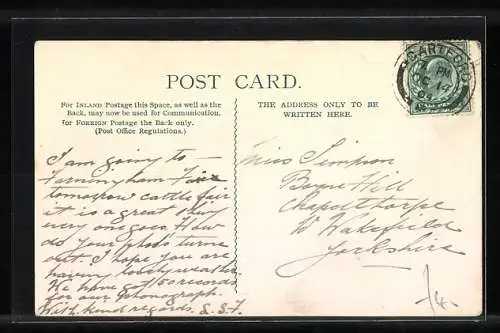 POST CARD.
For INLAND Postage this Space, as well as the
Back, may now be used for Communication.
For FOREIGN Postage the Back only.
(Post Office Regulations.)
THE ADDRESS ONLY TO BE
WRITTEN HERE.
DARTFORD
PM
I am going to
Farningham Fair
tomorrow cattle fair
it is a great
every one goes. How
do your photos turne
out. I hope you are
having lovely weather.
We have got 50 records
for our Phonograph.
With kind regards. S.S.F.
Miss Simpson
Boyne Hill
Chapelthorpe
Nr Wakefield
Yorkshire